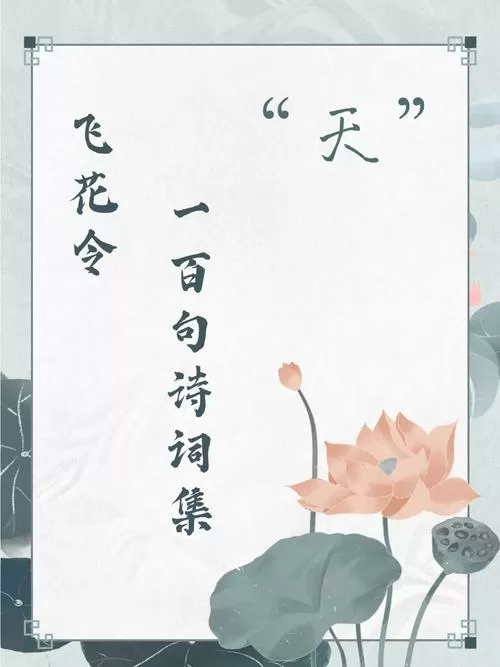 “天”
飞花令
一百句诗词集